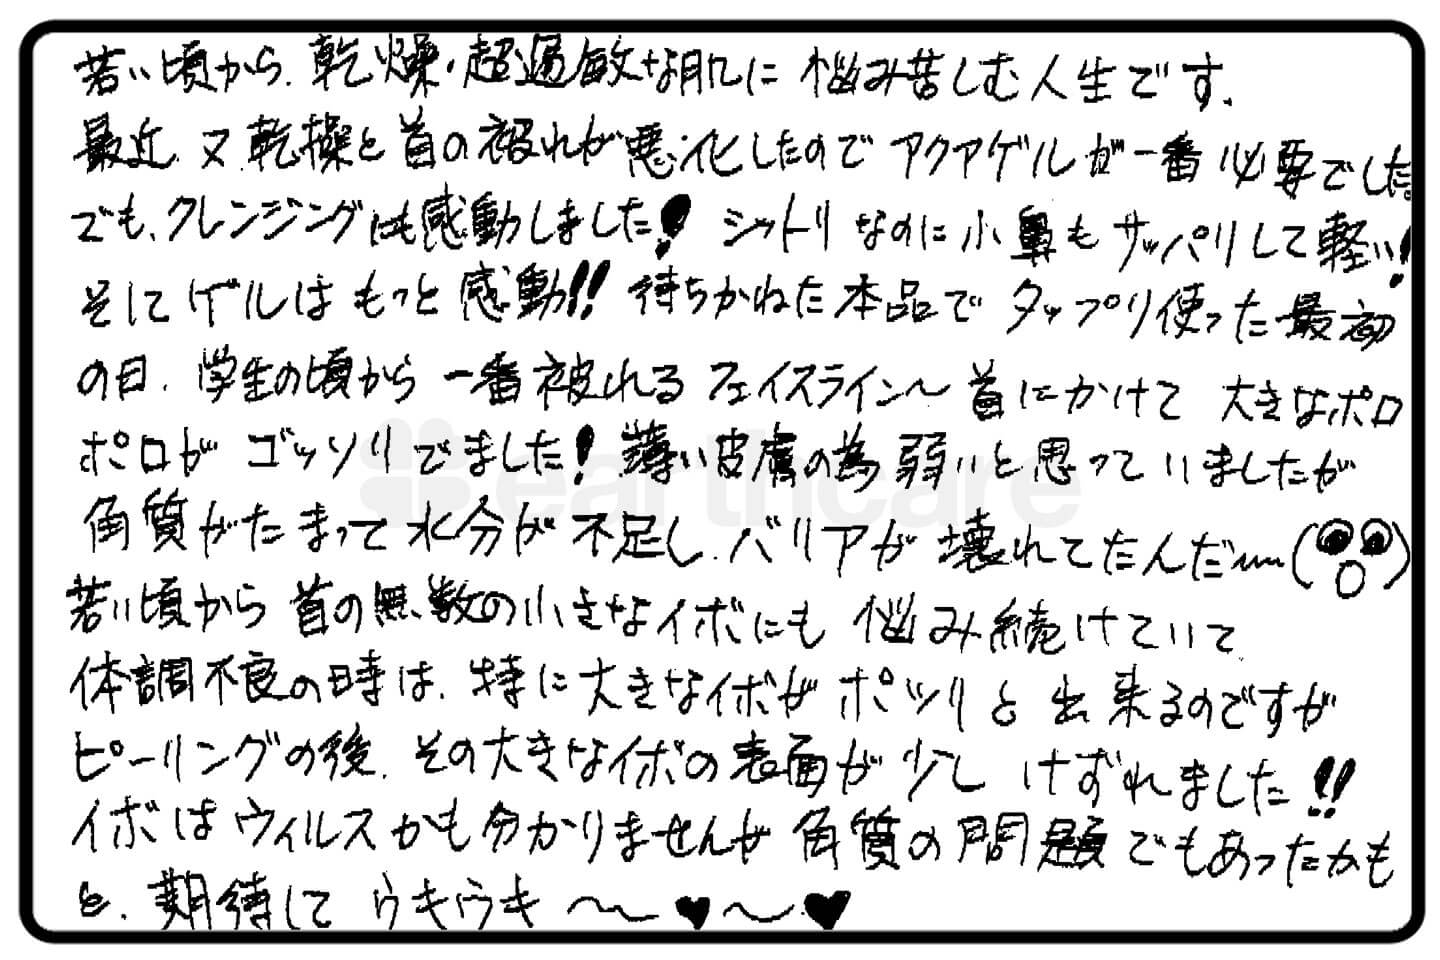 若い頃から、乾燥・超過敏な肌に悩み苦しむ人生です。
最近、又、乾燥と首の被れが悪化したのでアクアゲルが一番必要でした。
でも、クレンジングにも感動しました!シットリなのに小鼻もサッパリして軽い!
そしてゲルはもっと感動!!待ちかねた本品でタップリ使った最初
の日、学生の頃から一番被れるフェイスライン〜首にかけて大きなポロ
ポロがゴッソリでました!薄い皮膚の為弱いと思っていましたが
角質がたまって水分が不足し、バリアが壊れてたんだ〜
若い頃から首の無数の小さなイボにも悩み続けていて
体調不良の時は、特に大きなイボがポツリと出来るのですが
ピーリングの後、その大きなイボの表面が少しけずれました!!
イボはウィルスかも分かりませんが角質の問題でもあったかも
と、期待してウキウキ〜♥〜♥
earthcare